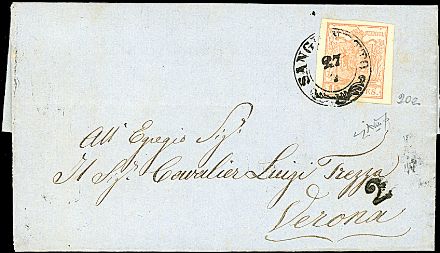 SANG
27
202
All' Egregio Sigr.
Il Sigr. Cavalier Luigi Trezza
2
Verona